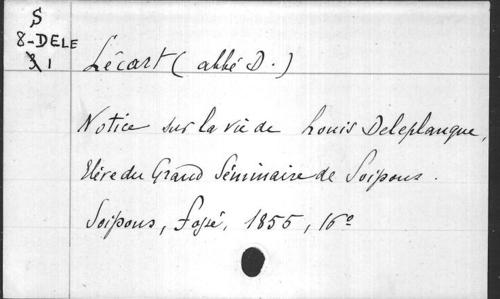 S
8-DELE
31
Lécart (abbé D.)
Notice sur la vie de Louis Deleplanque,
Elève du Grand Séminaire de Soissons.
Soissons, Fossé, 1855, 16°